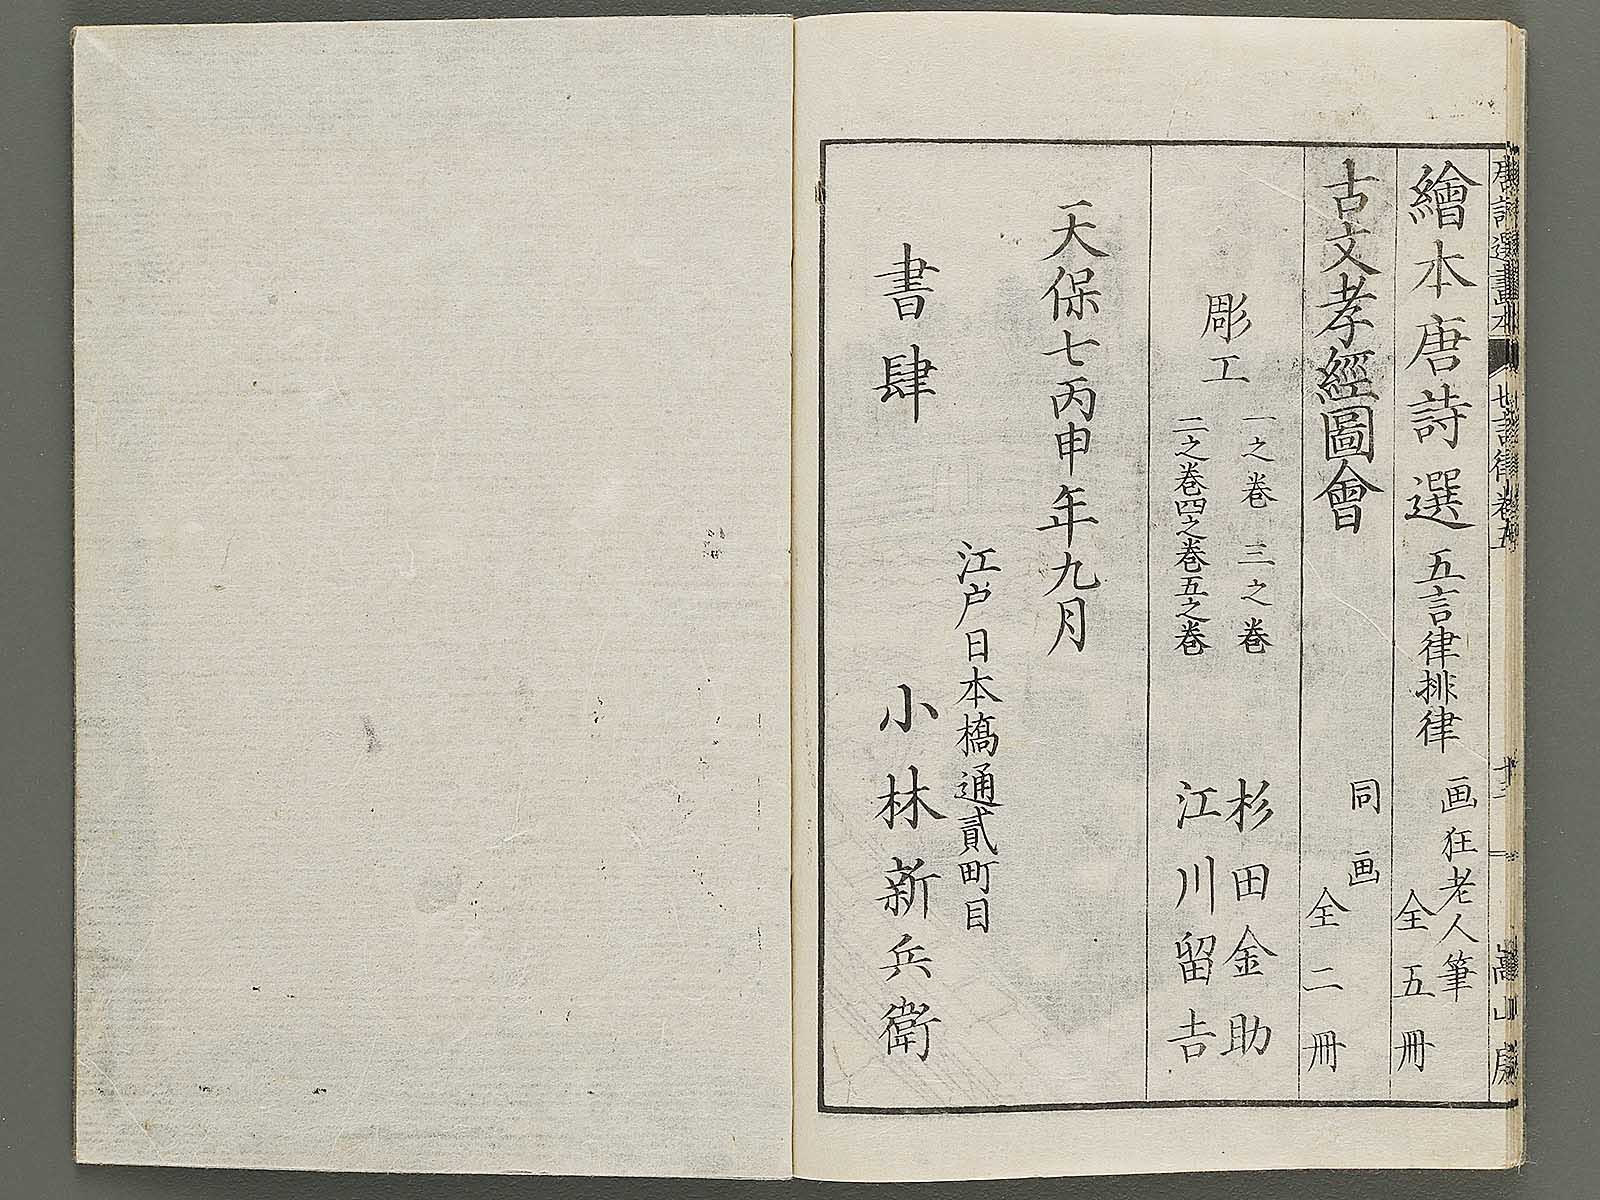 唐詩選畫本 七言律 卷五 嵩山房
繪本唐詩選 五言律排律 画狂老人筆 全五冊
古文孝經圖會 同画 全二冊
彫工
一之巻 三之巻 杉田金助
二之巻四之巻五之巻 江川留吉
天保七丙申年九月
江戸日本橋通貳町目
書肆 小林新兵衛